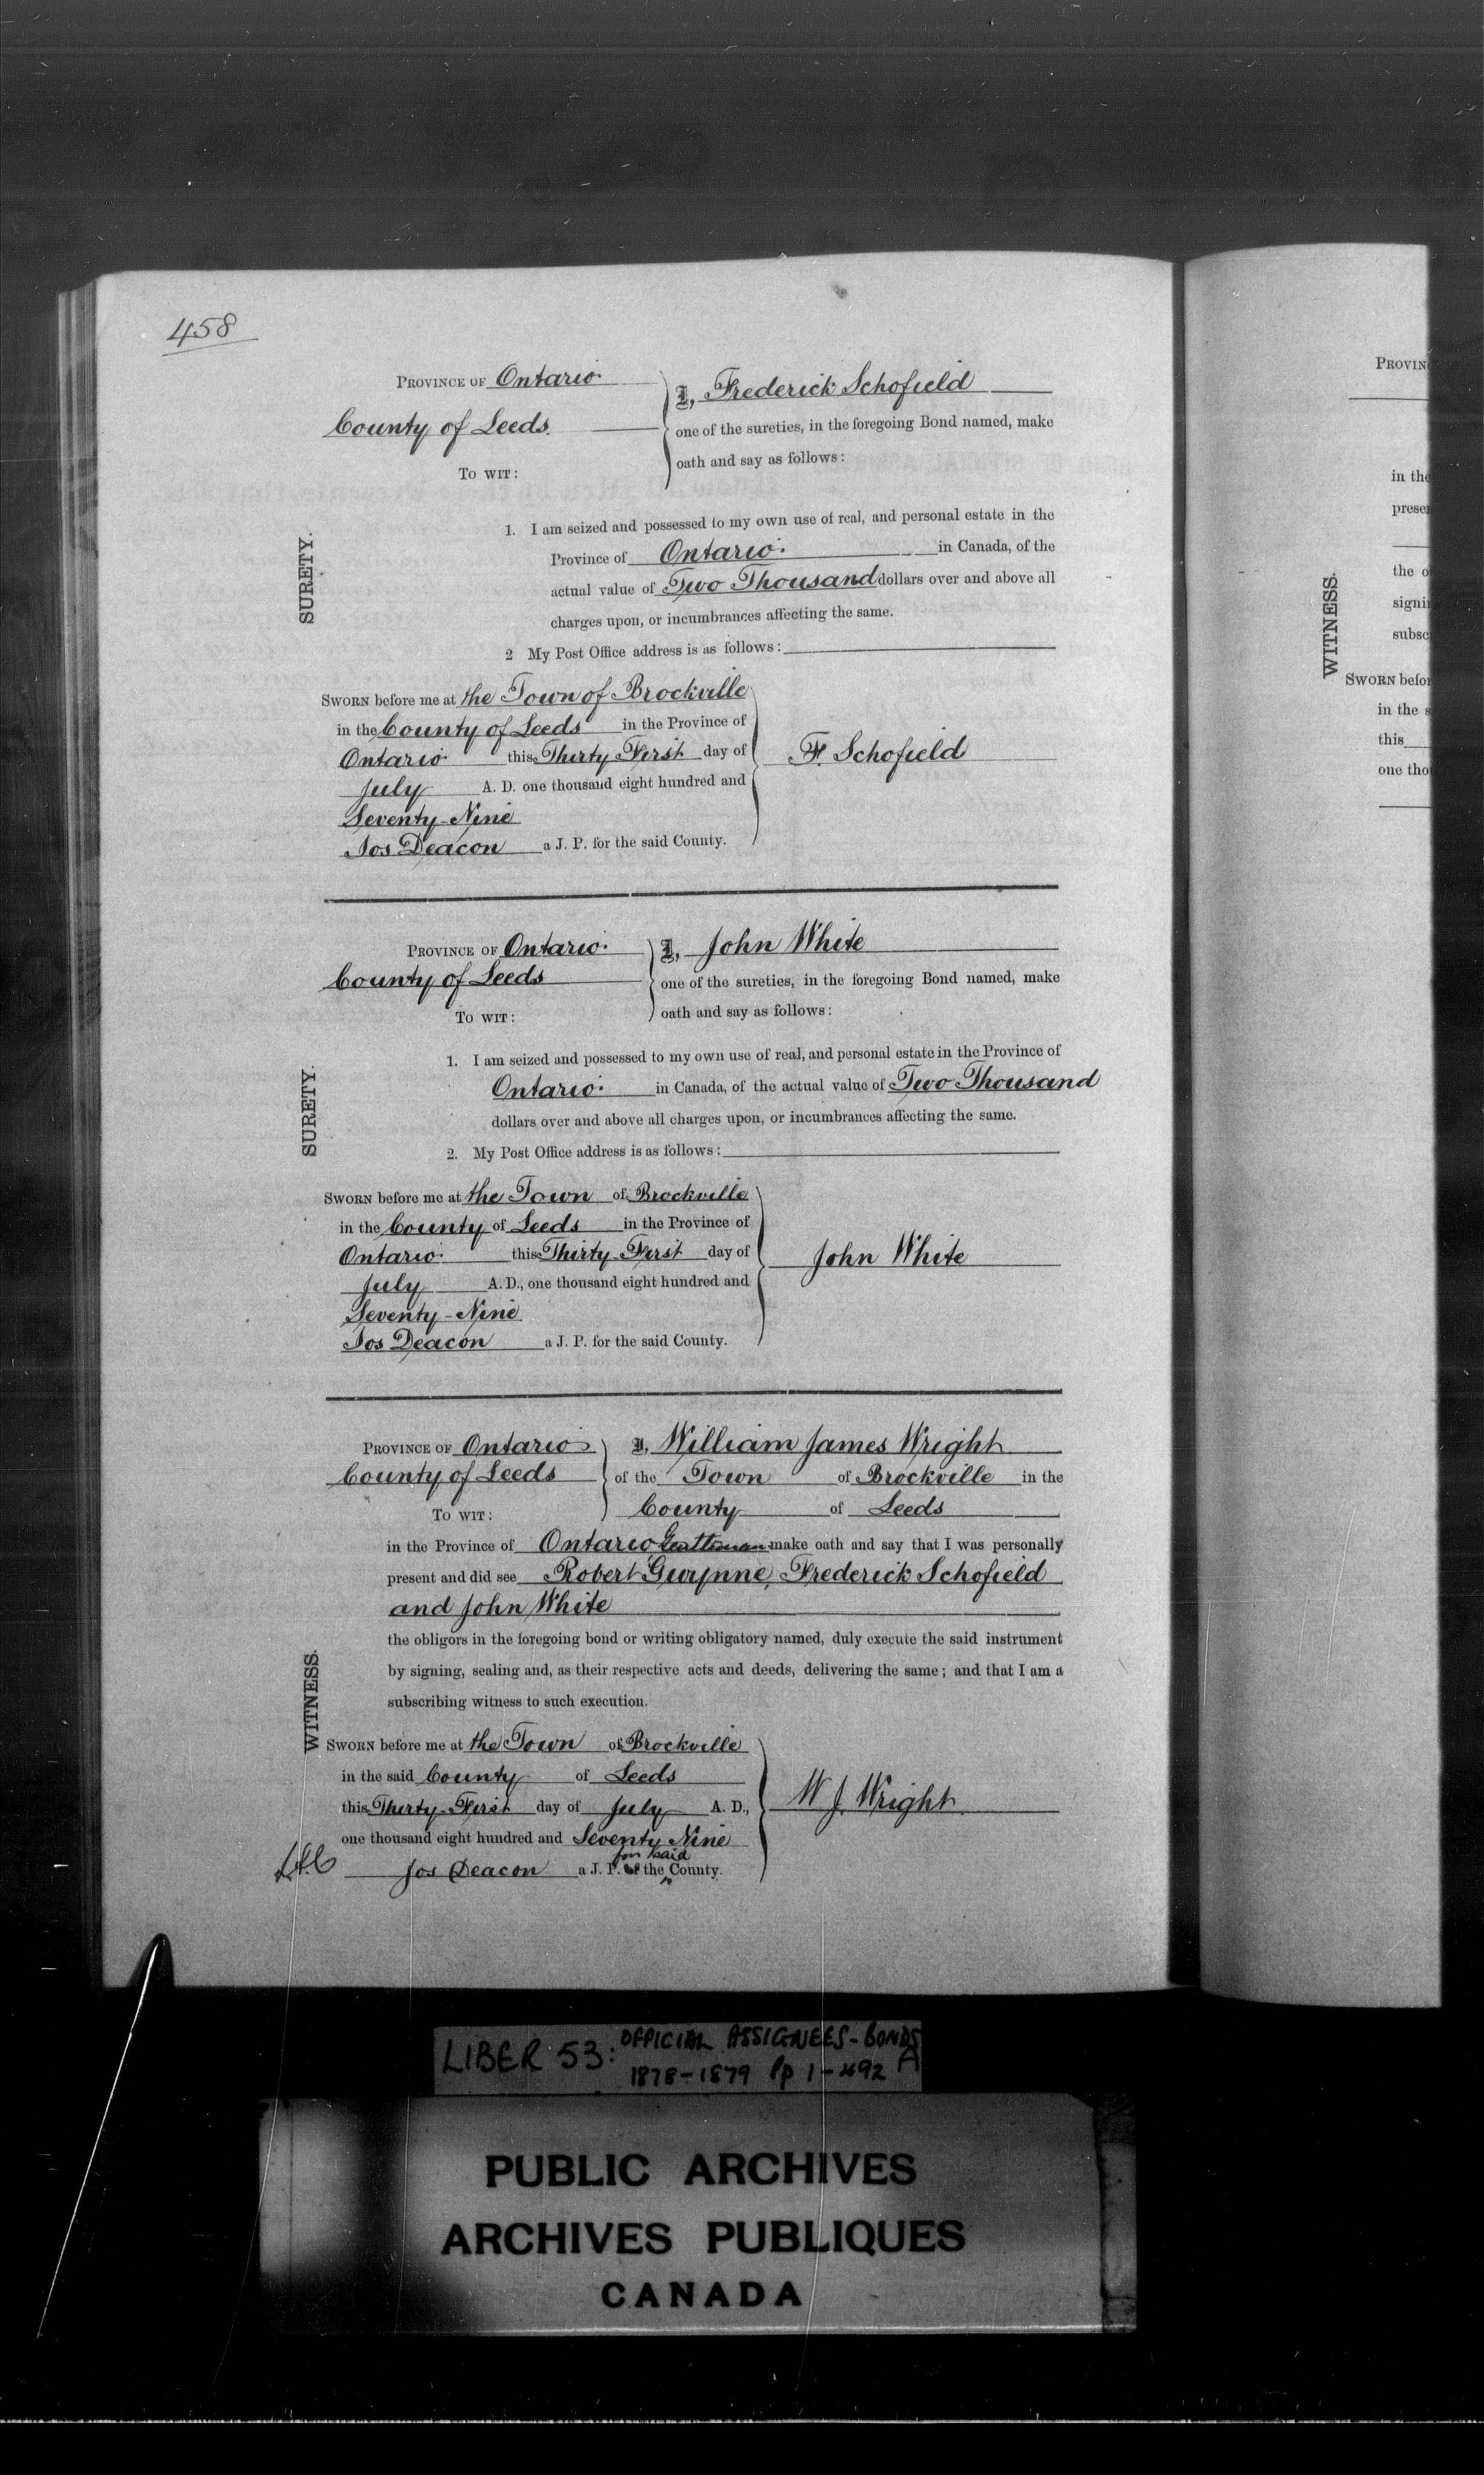 458
PROVINCE OF Ontario
County of Leeds
TO WIT:
I, Frederick Schofield
one of the sureties, in the foregoing Bond named, make
oath and say as follows:
SURETY.
1. I am seized and possessed to my own use of real, and personal estate in the
Province of Ontario in Canada, of the
actual value of Two Thousand dollars over and above all
charges upon, or incumbrances affecting the same.
2 My Post Office address is as follows:
SWORN before me at the Town of Brockville
in the County of Leeds in the Province of
Ontario this Thirty First day of
July A. D. one thousand eight hundred and
Seventy-Nine
Jos Deacon a J. P. for the said County.
F. Schofield
PROVINCE OF Ontario
County of Leeds
TO WIT:
I, John White
one of the sureties, in the foregoing Bond named, make
oath and say as follows:
SURETY.
1. I am seized and possessed to my own use of real, and personal estate in the Province of
Ontario in Canada, of the actual value of Two Thousand
dollars over and above all charges upon, or incumbrances affecting the same.
2. My Post Office address is as follows:
SWORN before me at the Town of Brockville
in the County of Leeds in the Province of
Ontario this Thirty-First day of
July A. D., one thousand eight hundred and
Seventy-Nine
Jos Deacon a J. P. for the said County.
John White
PROVINCE OF Ontario
County of Leeds
TO WIT:
I, William James Wright
of the Town of Brockville in the
County of Leeds
in the Province of Ontario Gentleman make oath and say that I was personally
present and did see Robert Gwynne, Frederick Schofield
and John White
the obligors in the foregoing bond or writing obligatory named, duly execute the said instrument
by signing, sealing and, as their respective acts and deeds, delivering the same; and that I am a
subscribing witness to such execution.
WITNESS.
SWORN before me at the Town of Brockville
in the said County of Leeds
this Thirty-First day of July A. D.,
one thousand eight hundred and Seventy Nine
for said
Jos Deacon a J. P. of the County.
W J. Wright
PROVIN
in the
presen
the o
signin
subsc
WITNESS.
SWORN befor
in the s
this
one thou
LIBER 53: OFFICIAL ASSIGNEES-BONDS
1878-1879 Pp 1-492 A
PUBLIC ARCHIVES
ARCHIVES PUBLIQUES
CANADA